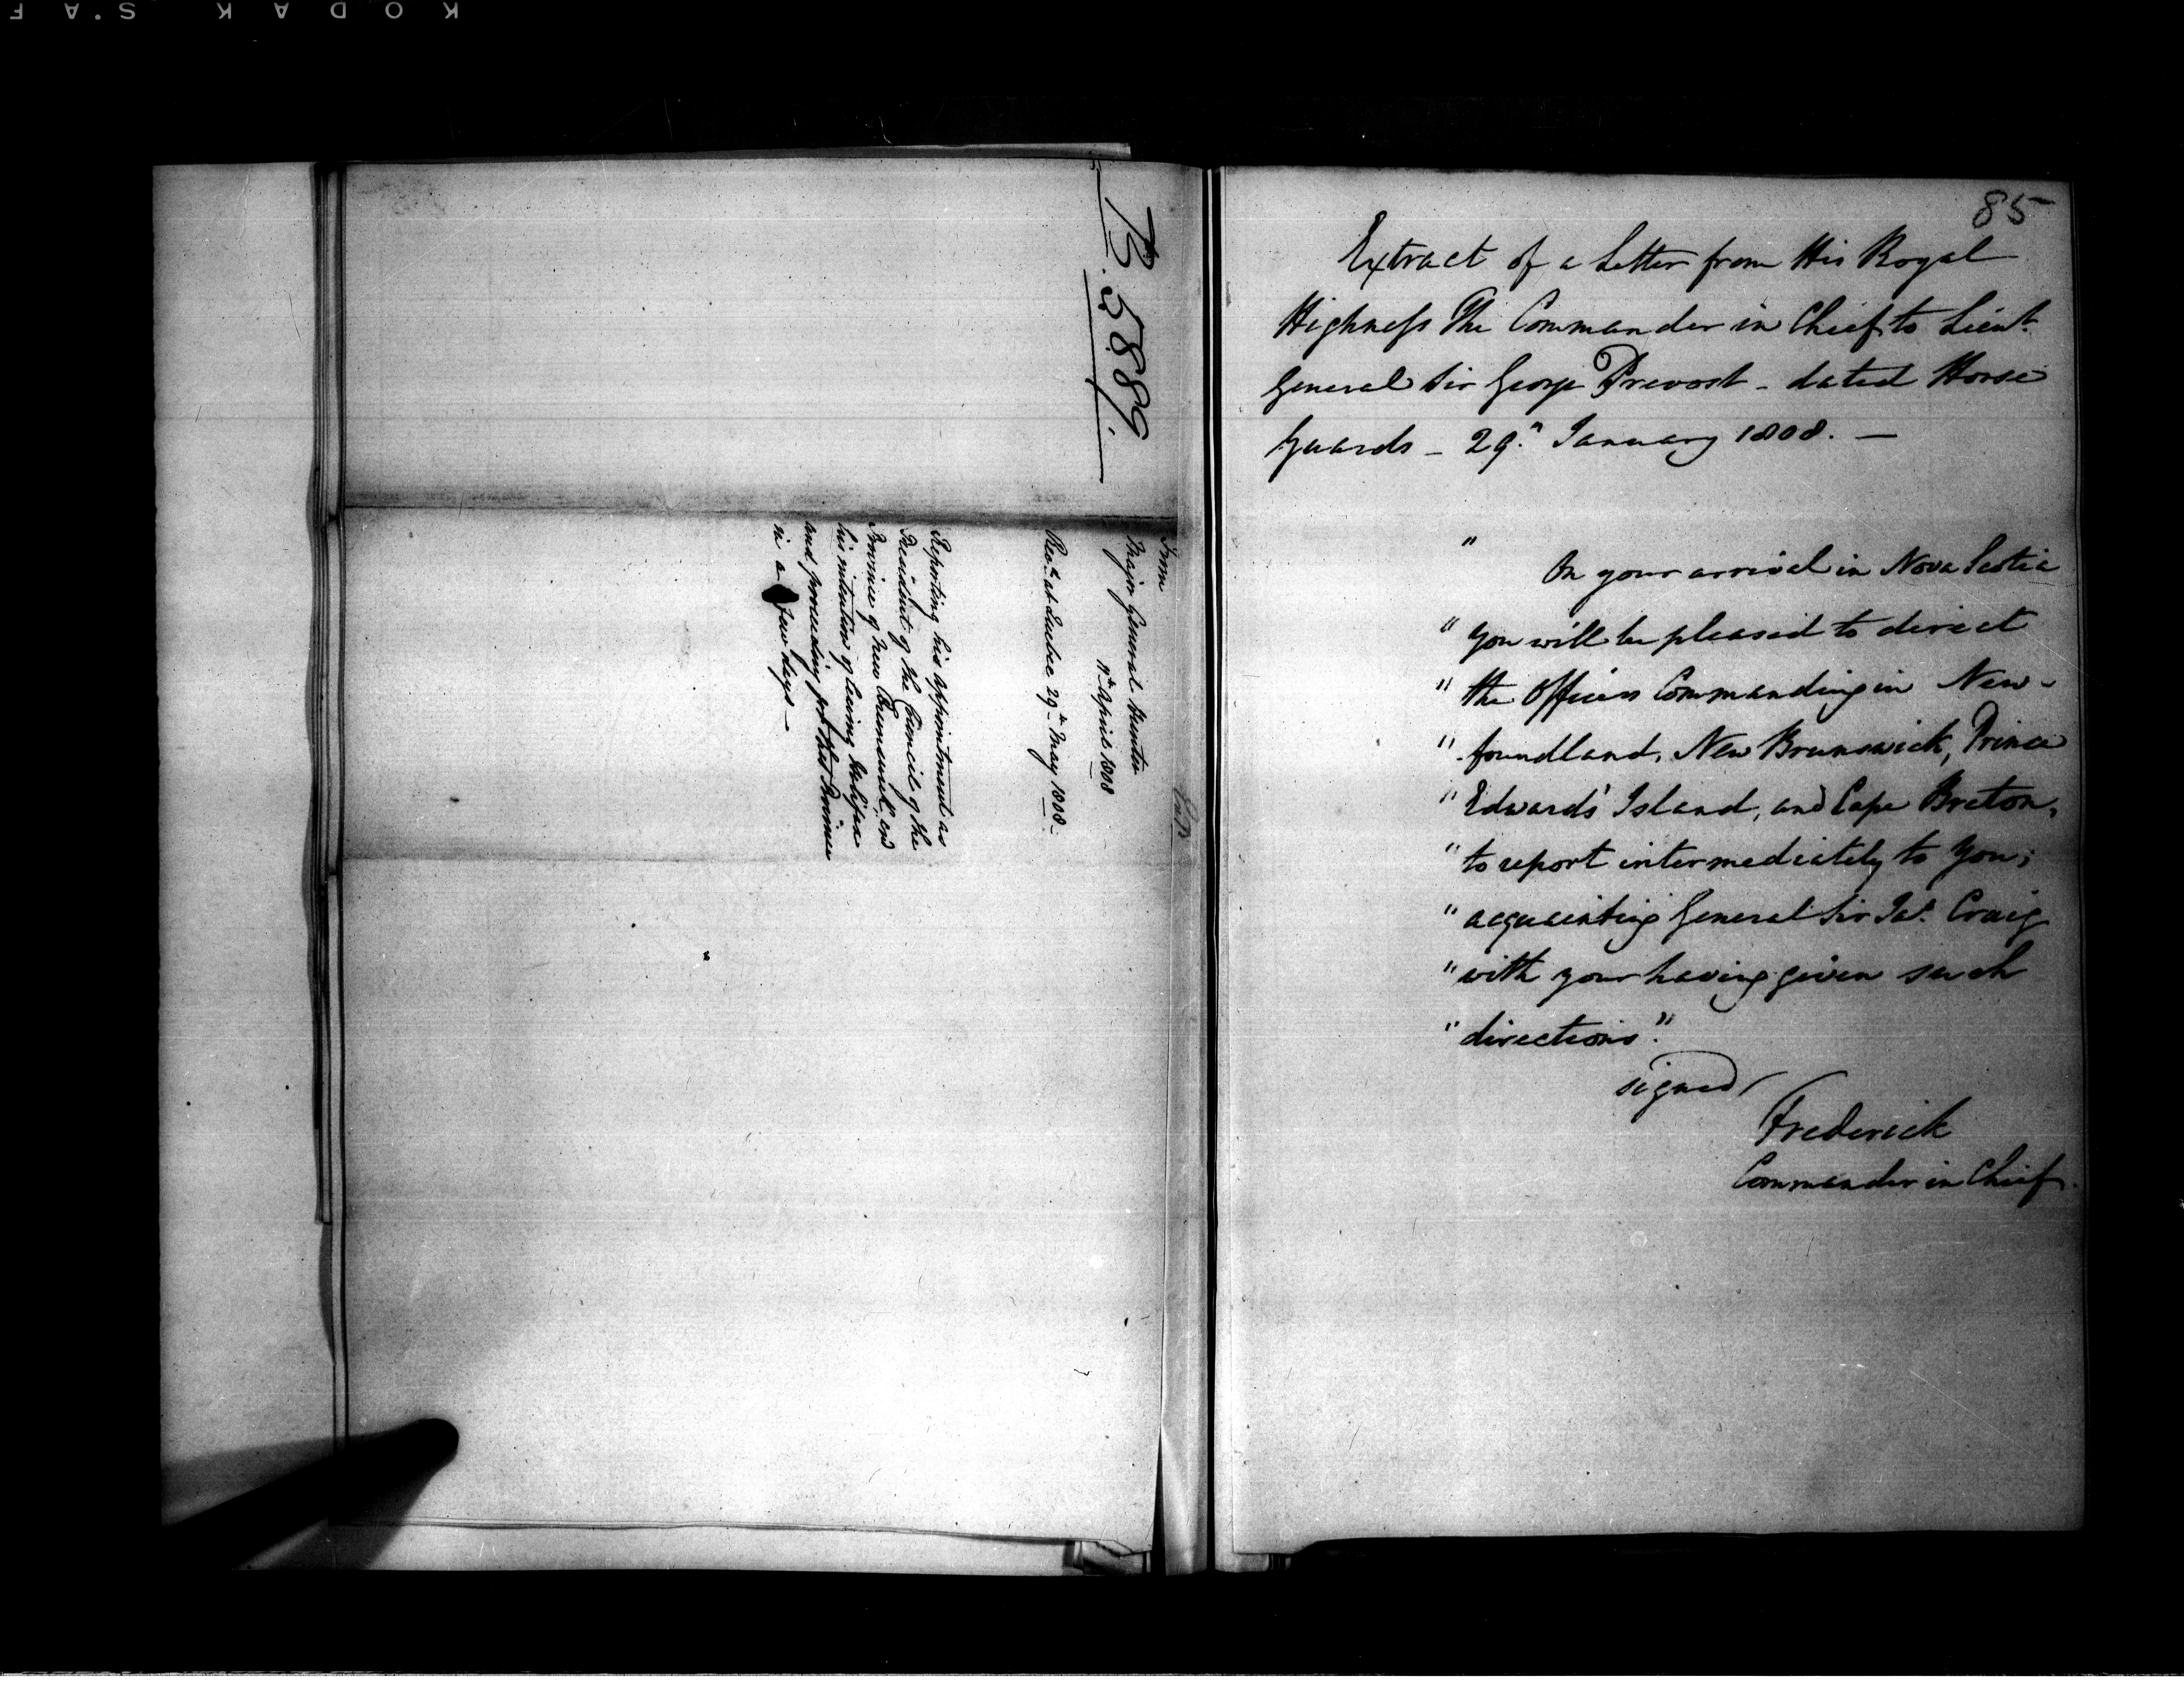 KODAK S.AF
B.5889.
From
Major General Hunter
12th April 1808
Recd at Quebec 29th May 1808 –
Reporting his appointment as
President of the Council of the
Province of New Brunswick, and
his intention of leaving Halifax
and proceeding for that Province
in a few days –
85
Extract of a Letter from His Royal
Highness The Commander in Chief to Lieut.
General Sir George Prevost – dated Horse
Guards – 29." January 1808. —
" On your arrival in Nova Scotia
" you will be pleased to direct
" the Officers Commanding in New-
" foundland, New Brunswick, Prince
" Edwards' Island, and Cape Breton,
" to report intermediately to You;
" acquainting General Sir Jas. Craig
" with your having given such
" directions."
signed/
Frederick
Commander in Chief.